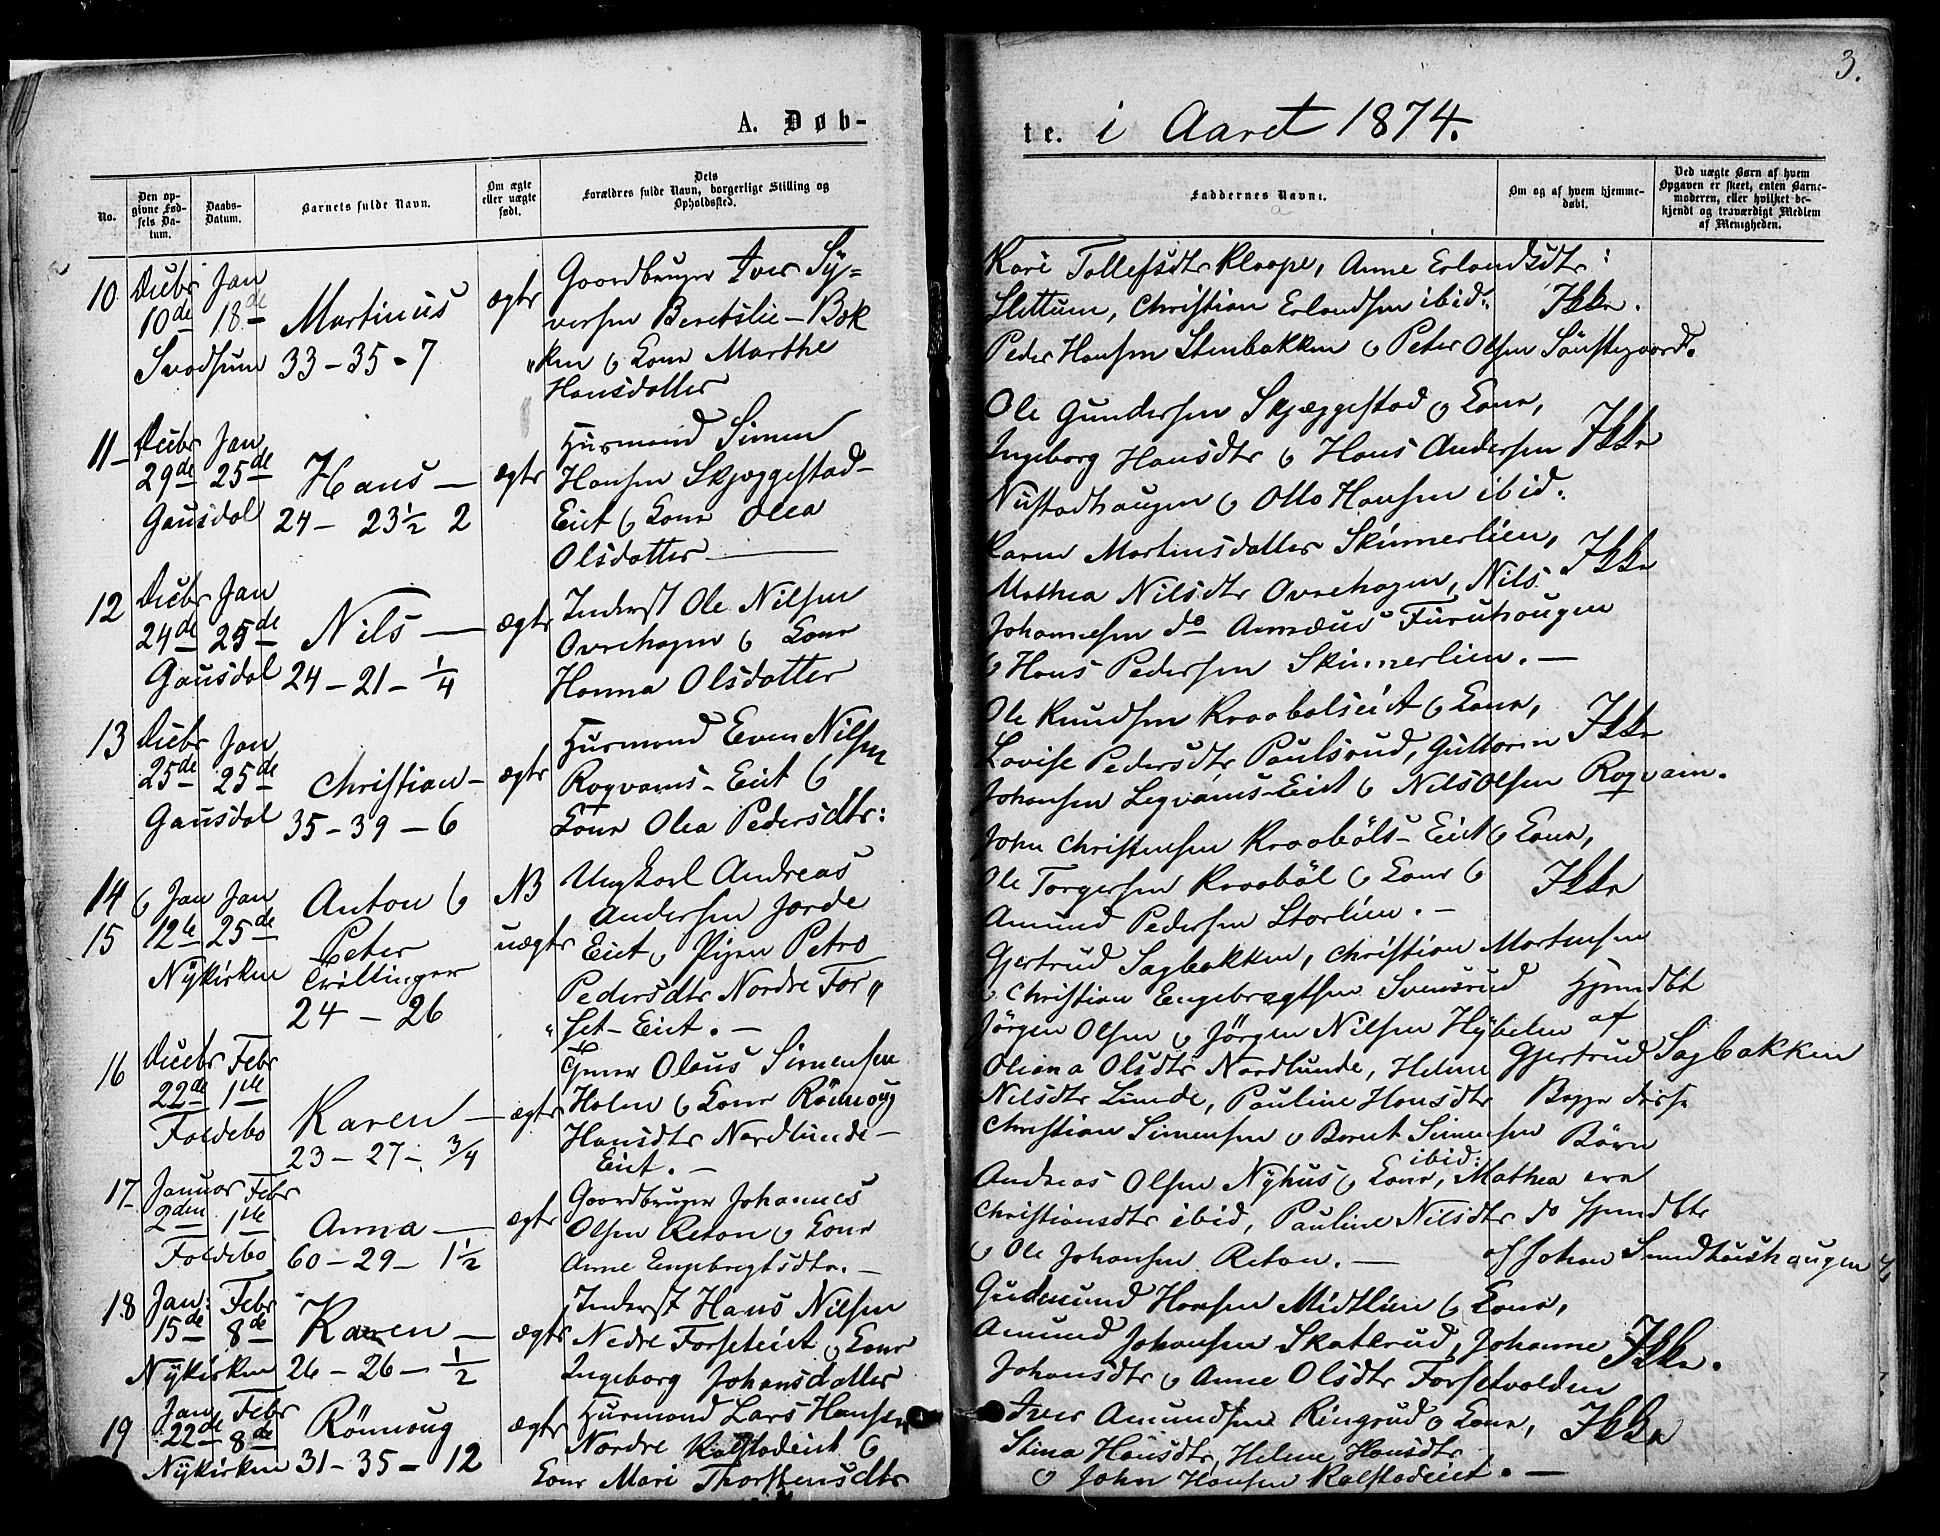 3.
A. Døb-
te. i Aaret 1874.
No.
Den op-
givne Fød-
sels Da-
tum.
Daabs-
Datum.
Barnets fulde Navn.
Om ægte
eller uægte
født.
Dets
Forældres fulde Navn, borgerlige Stilling og
Opholdssted.
Faddernes Navne.
Om og af hvem hjemme-
døbt.
Ved uægte Børn af hvem
Opgaven er skeet, enten Barne-
moderen, eller hvilket be-
kjendt og troværdigt Medlem
af Menigheden.
10 Decbr Jan
10de 18de Martinus ægte
Svadsum 33-35-7
Gaardbruger Iver Sy=
versen Beretslie-Bak
"ken & Kone Marthe
Hansdatter
Kari Tollefsdtr Klaape, Anne Erlandsdtr:
Slettum, Christian Erlandsen ibid: Ikke.
Peder Hansen Stenbakken & Peter Olsen Sönstegaard.
11- Decbr Jan
29de 25de Hans- ægte
Gausdal 24- 23½ 2
Husmand Simen
Hansen Skjæggestad-
Eiet & Kone Olea
Olsdatter
Ole Gundersen Skjæggestad & Kone,
Ingeborg Hansdtr & Hans Andersen Ikke
Nustadhaugen & Otto Hansen ibid.
12 Decbr Jan
24de 25de Nils- ægte
Gausdal 24-21-¼
Inderst Ole Nilsen
Ovrehagen & Kone
Hanna Olsdatter
Karen Martinsdatter Skinnerlien, Ikke
Mathea Nilsdtr Ovrehagen, Nils
Johannesen do Amæus Furuhaugen
& Hans Pedersen Skinnerlien.-
13 Decbr Jan
25de 25de Christian- ægte
Gausdal 35-39-6
Husmand Even Nilsen
Rogvams-Eiet &
Kone Olea Pedersdtr:
Ole Knudsen Kraabølseiet & Kone,
Lovise Pedersdtr Paulsrud, Guttorm Ikke
Johansen Legvams-Eiet & Nils Olsen Rogvam.
14 & Jan Jan Anton & NB
15 12te 25de Peter uægte
Nykirken Tvillinger
24-26
Ungkarl Andreas
Andersen Jorde
Eiet & Pigen Petra
Pedersdtr Nordre For"
"set-Eiet.-
John Christensen Kraaböls-Eiet & Kone,
Ole Torgersen Kraaböl & Kone & Ikke
Amund Pedersen Storlien.-
Gjertrud Sagbakken, Christian Martinsen
& Christian Engebregtsen Svensrud Hjemdbt
Jörgen Olsen & Jörgen Nilsen Hybelen af
Gjertrud Sagbakken
Begge disse
Børn
ere
16 Decbr Febr
22de 1ste Karen- ægte
Foldebo 23-27-¾
Gjører Olaus Simensen
Holen & Kone Rönnoug
Hansdtr Nordlunde-
Eiet.-
Oliana Olsdtr Nordlunde, Helene
Nilsdtr Lunde, Pauline Hansdtr
Christian Simensen & Bernt Simensen
ibid:
17- Januar Febr
2den 1ste Anna- ægte
Foldebo 60-29-1½
Gaardbruger Johannes
Olsen Reton & Kone
Anne Engebregtsdtr.-
Andreas Olsen Nyhus & Kone, Mathea
Christiansdtr ibid, Pauline Nilsdtr do hjemdbte
& Ole Johansen Reton.- af Johan Smedhushaugen
18 Jan: Febr
15de 8de Karen- ægte
Nykirken 26-26-½
Inderst Hans Nilsen
Nedre Forseteiet & Kone
Ingeborg Johansdatter
Gudmund Hansen Midtlien & Kone,
Amund Johansen Skatterud, Johanne Ikke.
Johansdtr & Anne Olsdtr Forsetvolden
19 Jan Febr
22de 8de Rönnoug ægte
Nykirken 31-35-12
Husmand Lars Hansen
Nordre Kalstadeiet &
Kone Mari Thorstensdtr
Iver Amundsen Ringrud & Kone, Ikke
Stina Hansdtr, Helene Hansdtr
& John Hansen Kalstadeiet.-